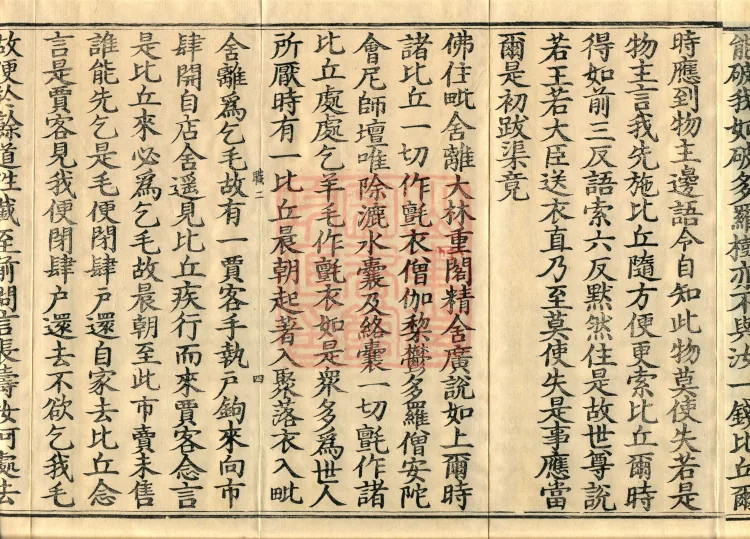 能破我如破多羅亦不與汝一錢比丘爾
時應到物主邊語令自知此物莫使失若是
物主言我先施比丘隨方便更索比丘爾時
得如前三反語索六反默然住是故世尊說
若王若大臣送衣直乃至莫使失是事應當
爾是初跋渠竟
佛住毗舍離大林重閣精舍廣說如上爾時
諸比丘一切作氈衣僧伽棃鬱多羅僧安陀
會尼師壇唯除漉水囊及絡囊一切氈作諸
比丘處處乞羊毛作氈衣如是衆多爲世人
所厭時有一比丘晨朝起著入聚落衣入毗
職二 四
舍離爲乞毛故有一賈客手執戶鉤來向市
肆開自店舍遥見比丘疾行而來賈客念言
是比丘來必爲乞毛故晨朝至此市賣未售
誰能先乞是毛便閉肆戶還自家去比丘念
言是賈客見我便閉肆戶還去不欲乞我毛
故便於餘道往截至前問言長壽汝何處去